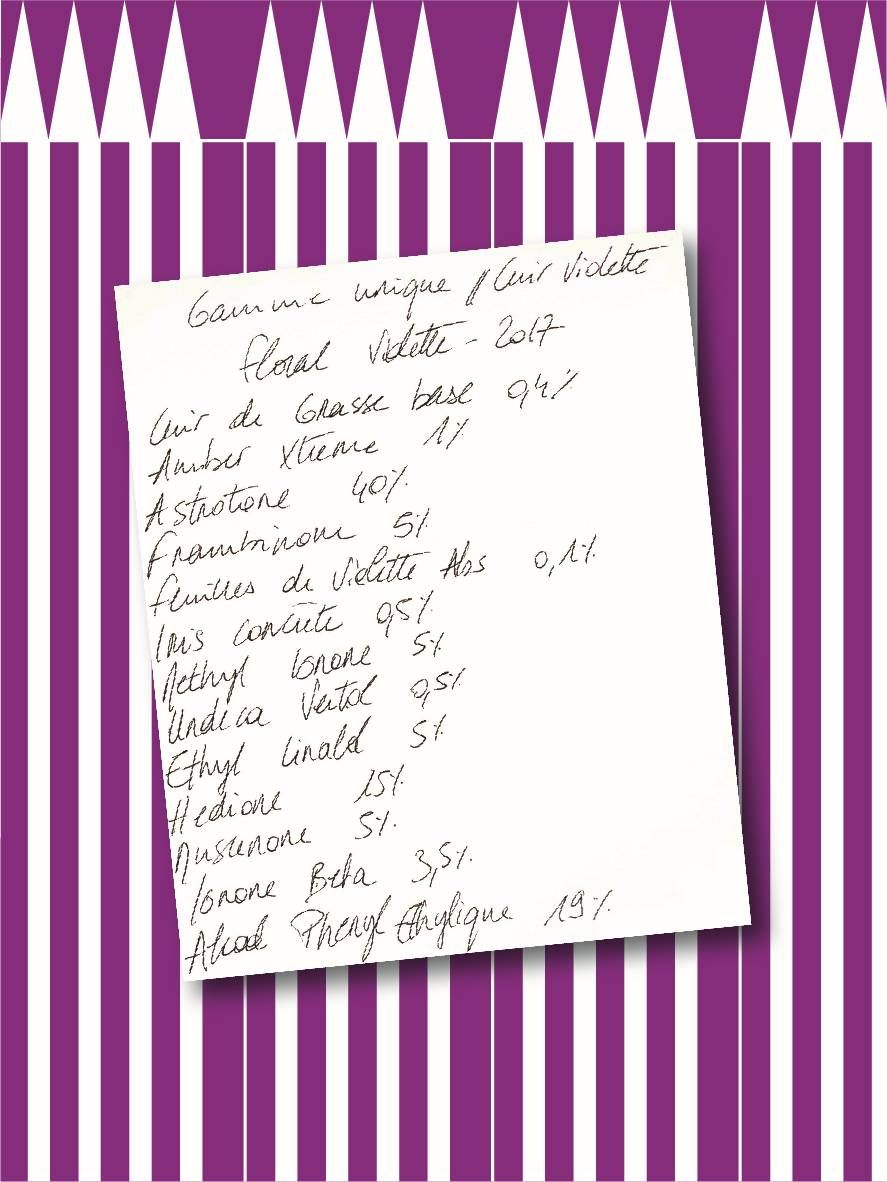 Gamme unique // Cuir Violette
Floral Violette - 2017
Cuir de Grasse base 0,4%
Amber Xtreme 1%
Astrotone 40%
Frambinone 5%
Feuilles de Violette Abs 0,1%
Iris concrète 0,5%
Methyl Ionone 5%
Undeca Vertol 0,5%
Ethyl Linalol 5%
Hedione 15%
Muscenone 5%
Ionone Beta 3,5%
Alcool Phenyl Ethylique 19%